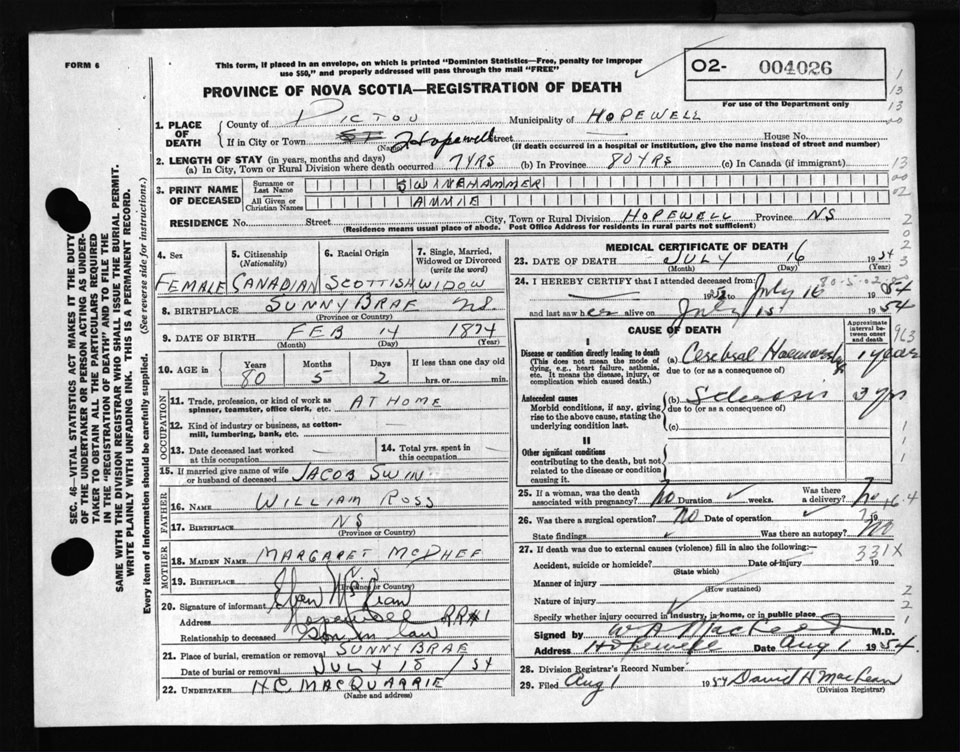 FORM 6
This form, if placed in an envelope, on which is printed "Dominion Statistics—Free, penalty for improper
use $50," and properly addressed will pass through the mail "FREE"
PROVINCE OF NOVA SCOTIA—REGISTRATION OF DEATH
O2- 004026
For use of the Department only
1. PLACE OF DEATH
County of PICTOU Municipality of HOPEWELL
If in City or Town Hopewell Street House No.
(Name) (If death occurred in a hospital or institution, give the name instead of street and number)
2. LENGTH OF STAY (in years, months and days)
(a) In City, Town or Rural Division where death occurred 7 YRS (b) In Province 80 YRS (c) In Canada (if immigrant)
3. PRINT NAME OF DECEASED
Surname or Last Name SWINEHAMMER
All Given or Christian Names ANNIE
RESIDENCE No. Street City, Town or Rural Division HOPEWELL Province NS
(Residence means usual place of abode. Post Office Address for residents in rural parts not sufficient)
4. Sex 5. Citizenship (Nationality) 6. Racial Origin 7. Single, Married, Widowed or Divorced (write the word)
FEMALE CANADIAN SCOTTISH WIDOW
8. BIRTHPLACE SUNNY BRAE NS.
(Province or Country)
9. DATE OF BIRTH FEB 14 1874
(Month) (Day) (Year)
10. AGE IN Years Months Days If less than one day old
80 5 2 hrs. or min.
OCCUPATION
11. Trade, profession, or kind of work as spinner, teamster, office clerk, etc. AT HOME
12. Kind of industry or business, as cotton-mill, lumbering, bank, etc.
13. Date deceased last worked at this occupation
14. Total yrs. spent in this occupation
15. If married give name of wife or husband of deceased JACOB SWIN.
FATHER
16. NAME WILLIAM ROSS
17. BIRTHPLACE NS
(Province or Country)
MOTHER
18. MAIDEN NAME MARGARET MCPHEE
19. BIRTHPLACE
(Province or Country)
20. Signature of informant
Address Hopewell RR#1
Relationship to deceased Son in law
21. Place of burial, cremation or removal SUNNY BRAE
Date of burial or removal JULY 18 /54
22. UNDERTAKER H.C. MACQUARRIE
(Name and address)
MEDICAL CERTIFICATE OF DEATH
23. DATE OF DEATH JULY 16 1954
(Month) (Day) (Year)
24. I HEREBY CERTIFY that I attended deceased from:
July 16 1954
and last saw her alive on July 15 1954
80-5-02
CAUSE OF DEATH
Approximate interval between onset and death
I
Disease or condition directly leading to death
(This does not mean the mode of dying, e.g., heart failure, asthenia, etc. It means the disease, injury, or complication which caused death.)
(a) Cerebral
due to (or as a consequence of)
1 year
Antecedent causes
Morbid conditions, if any, giving rise to the above cause, stating the underlying condition last.
(b)
due to (or as a consequence of)
3 yrs
(c)
II
Other significant conditions
contributing to the death, but not related to the disease or condition causing it.
25. If a woman, was the death associated with pregnancy? No Duration weeks. Was there a delivery? No
26. Was there a surgical operation? No Date of operation
State findings Was there an autopsy? No
27. If death was due to external causes (violence) fill in also the following:— 331X
Accident, suicide or homicide? Date of injury 19
(State which)
Manner of injury
(How sustained)
Nature of injury
Specify whether injury occurred in industry, in home, or in public place
Signed by M.D.
Address Hopewell Date Aug 1 1954.
28. Division Registrar's Record Number
29. Filed Aug 1 1954 David H MacLean
(Division Registrar)
SEC. 46—VITAL STATISTICS ACT MAKES IT THE DUTY
OF THE UNDERTAKER OR PERSON ACTING AS UNDER-
TAKER TO OBTAIN ALL THE PARTICULARS REQUIRED
IN THE "REGISTRATION OF DEATH" AND TO FILE THE
SAME WITH THE DIVISION REGISTRAR WHO SHALL ISSUE THE BURIAL PERMIT.
WRITE PLAINLY WITH UNFADING INK. THIS IS A PERMANENT RECORD.
Every item of information should be carefully supplied. (See reverse side for instructions.)